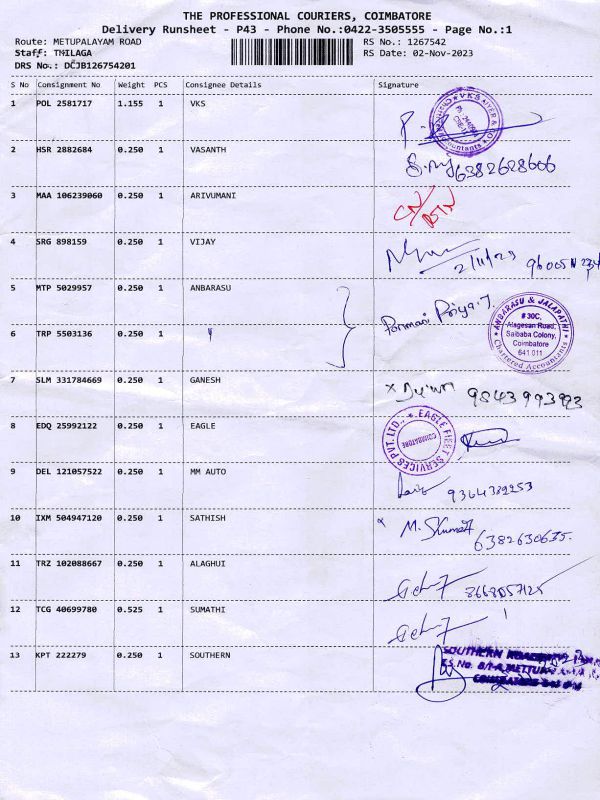 THE PROFESSIONAL COURIERS, COIMBATORE
Delivery Runsheet - P43 - Phone No.:0422-3505555 - Page No.:1
Route: METUPALAYAM ROAD RS No.: 1267542
Staff: THILAGA RS Date: 02-Nov-2023
DRS No.: DCJB126754201
S No Consignment No Weight PCS Consignee Details Signature
1 POL 2581717 1.155 1 VKS
2 HSR 2882684 0.250 1 VASANTH 6382628606
3 MAA 106239060 0.250 1 ARIVUMANI
4 SRG 898159 0.250 1 VIJAY 2/11/23
5 MTP 5029957 0.250 1 ANBARASU
ANBARASU & JALAPATHI
# 30C,
Alagesan Road,
Saibaba Colony,
Coimbatore
641 011
Chartered Accountants
6 TRP 5503136 0.250 1 "
7 SLM 331784669 0.250 1 GANESH 9843993923
8 EDQ 25992122 0.250 1 EAGLE
EAGLE FLEET SERVICES PVT. LTD.,
COIMBATORE
9 DEL 121057522 0.250 1 MM AUTO 9364389253
10 IXM 504947120 0.250 1 SATHISH M. SKumar 6382630635.
11 TRZ 102088667 0.250 1 ALAGHUI 8668057125
12 TCG 40699780 0.525 1 SUMATHI
13 KPT 222279 0.250 1 SOUTHERN
SOUTHERN